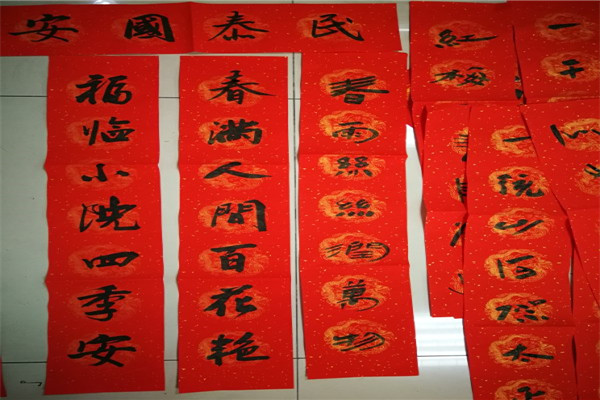 民泰國安
一千
紅梅
一統山河
太
春雨絲絲潤萬物
春滿人間百花艷
福臨小院四季安